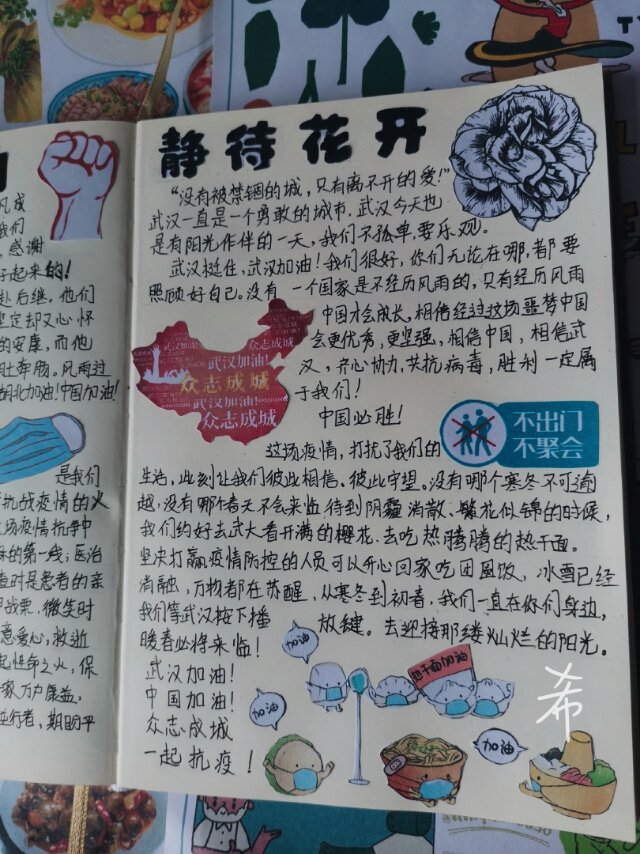 静待花开
“没有被禁锢的城，只有离不开的爱！”
武汉一直是一个勇敢的城市，武汉今天也
是有阳光作伴的一天，我们不孤单，要乐观。
武汉挺住，武汉加油！我们很好，你们无论在哪，都要
照顾好自己。没有一个国家是不经历风雨的，只有经历风雨
中国才会成长，相信经过这场噩梦中国
会更优秀，更坚强，相信中国，相信武
汉，齐心协力，共抗病毒，胜利一定属
于我们！
中国必胜！
武汉加油！
众志成城
武汉加油！
众志成城
武汉加油！
众志成城
不出门
不聚会
这场疫情，打扰了我们的
生活，此刻让我们彼此相信。彼此守望。没有哪个寒冬不可逾
越，没有哪个春天不会来临。待到阴霾消散、繁花似锦的时候，
我们约好去武大看开满的樱花、去吃热腾腾的热干面。
坚决打赢疫情防控的人员可以开心回家吃团圆饭，冰雪已经
消融，万物都在苏醒，从寒冬到初春，我们一直在你们身边，
我们等武汉按下播放键。去迎接那缕灿烂的阳光。
暖春必将来临！
武汉加油！
中国加油！
众志成城
一起抗疫！
加油
加油
热干面加油
加油
希
风成
我们
，感谢
好起来的！
赴后继。他们
坚定却又心怀
的安康，而他
壮举励。风雨过
湖北加油！中国加油！
是我们
抗战疫情的火
场疫情抗争中
的第一线；医治
时是患者的亲
战栗，微笑时
意爱心，救逝
起性命之火，保
家万户康益。
逆行者，期盼平